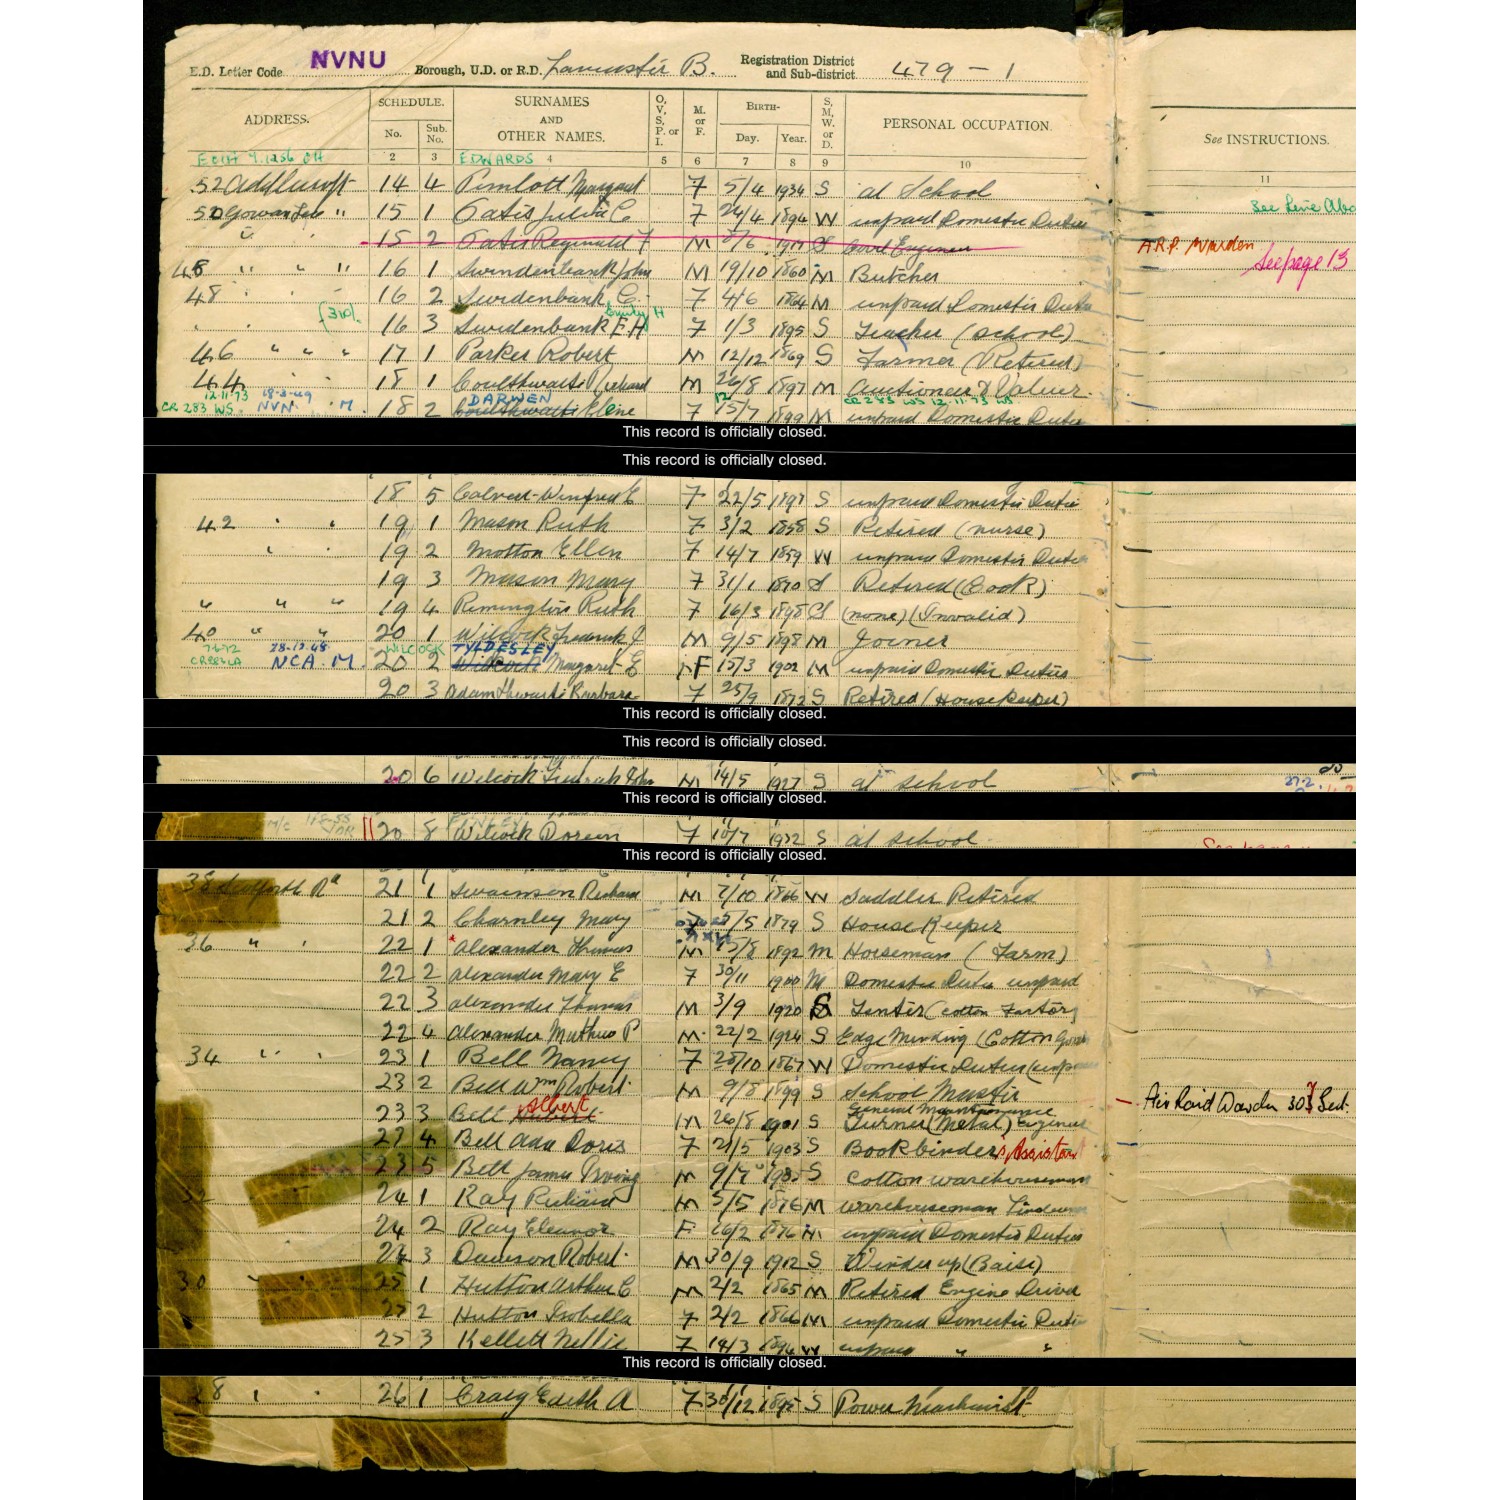 E.D. Letter Code NVNU Borough, U.D. or R.D. Lancaster B. Registration District and Sub-district 479 - 1
ADDRESS. SCHEDULE. No. Sub. No. SURNAMES AND OTHER NAMES. O, V, S, P. or I. M. or F. BIRTH- Day. Year. S, M, W. or D. PERSONAL OCCUPATION. See INSTRUCTIONS.
2 3 EDWARDS 4 5 6 7 8 9 10 11
52 14 4 Pimlott Margaret F 5/4 1934 S at School
See Line Abo
15 1 F 24/4 1894 W unpaid Domestic Duties
15 2 Reginald F M 8/6 S Civil Engineer A.R.P. Warden
See page 13
48 " " " 16 1 Swindenbank John M 19/10 1860 M Butcher
48 16 2 Swindenbank E. F 4/6 1864 M unpaid Domestic Duties
Emily H
16 3 Swindenbank E H F 1/3 1895 S Teacher (School)
46 " " " 17 1 Parker Robert M 12/12 1869 S Farmer (Retired)
44 18 1 Coulthwaite Richard M 26/8 1897 M Auctioneer & Valuer
12.11.73 18-3-49 DARWEN 12 CR 283 WS 12.11.73 WS
CR 283 WS. NVN M. 18 2 Coulthwaite Elene 15/7 1899 M unpaid Domestic Duties
This record is officially closed.
This record is officially closed.
18 5 Calvert Winifred E F 22/5 1897 S unpaid Domestic Duties
42 " " 19 1 Mason Ruth F 3/2 1858 S Retired (nurse)
19 2 Motton Ellen F 14/7 1859 W unpaid Domestic Duties
19 3 Mason Mary F 31/1 1870 S Retired (Cook)
" " " 19 4 Rimington Ruth F 16/3 1898 S (none) (Invalid)
40 " " 20 1 Wilcock Frederick J M 9/5 1898 M Joiner
28.12.48 WILCOCK TYLDESLEY
NCA. M. 20 2 Wilcock Margaret E F 15/3 1902 M unpaid Domestic Duties
20 3 Adamthwaite Barbara F 25/9 1872 S Retired (Housekeeper)
This record is officially closed.
This record is officially closed.
20 6 Wilcock John M 14/5 1927 S at school
This record is officially closed.
20 8 Wilcock Doreen F 10/7 1932 S at school
This record is officially closed.
38 Scotforth Rd 21 1 Swainson Richard M 7/10 1866 W Saddler Retired
21 2 Charnley Mary F /5 1879 S House Keeper
36 " " 22 1 Alexander Thomas M 15/8 1892 M Horseman (Farm)
22 2 Alexander Mary E F 30/11 1900 M Domestic Duties unpaid
22 3 Alexander Thomas M 3/9 1920 S Tenter (Cotton Factory)
22 4 Alexander Mathew P M 22/2 1924 S Edge Minding (Cotton
34 " " 23 1 Bell Nancy F 28/10 1867 W Domestic Duties (unpaid
23 2 Bell Wm Robert M 9/8 1899 S School Master Air Raid Warden
Albert General Maintenance
23 3 Bell Hubert M 26/8 1901 S Turner (Metal) Engineer
23 4 Bell Ada Doris F 21/5 1903 S Bookbinders Assistant
23 5 Bell James Irving M 9/7 1905 S Cotton warehouseman
32 24 1 Ray Richard M 5/5 1876 M warehouseman
24 2 Ray Eleanor F 16/2 1876 M unpaid Domestic Duties
24 3 Dawson Robert M 30/9 1912 S Winder up (Baise)
30 25 1 Hutton Arthur C M 2/2 1865 M Retired Engine Driver
25 2 Hutton Isobella F 2/2 1866 M unpaid Domestic Duties
25 3 Kellett Nellie F 14/3 1894 W unpaid " "
This record is officially closed.
28 " " 26 1 Craig Edith A F 30/12 1895 S Power Machinist